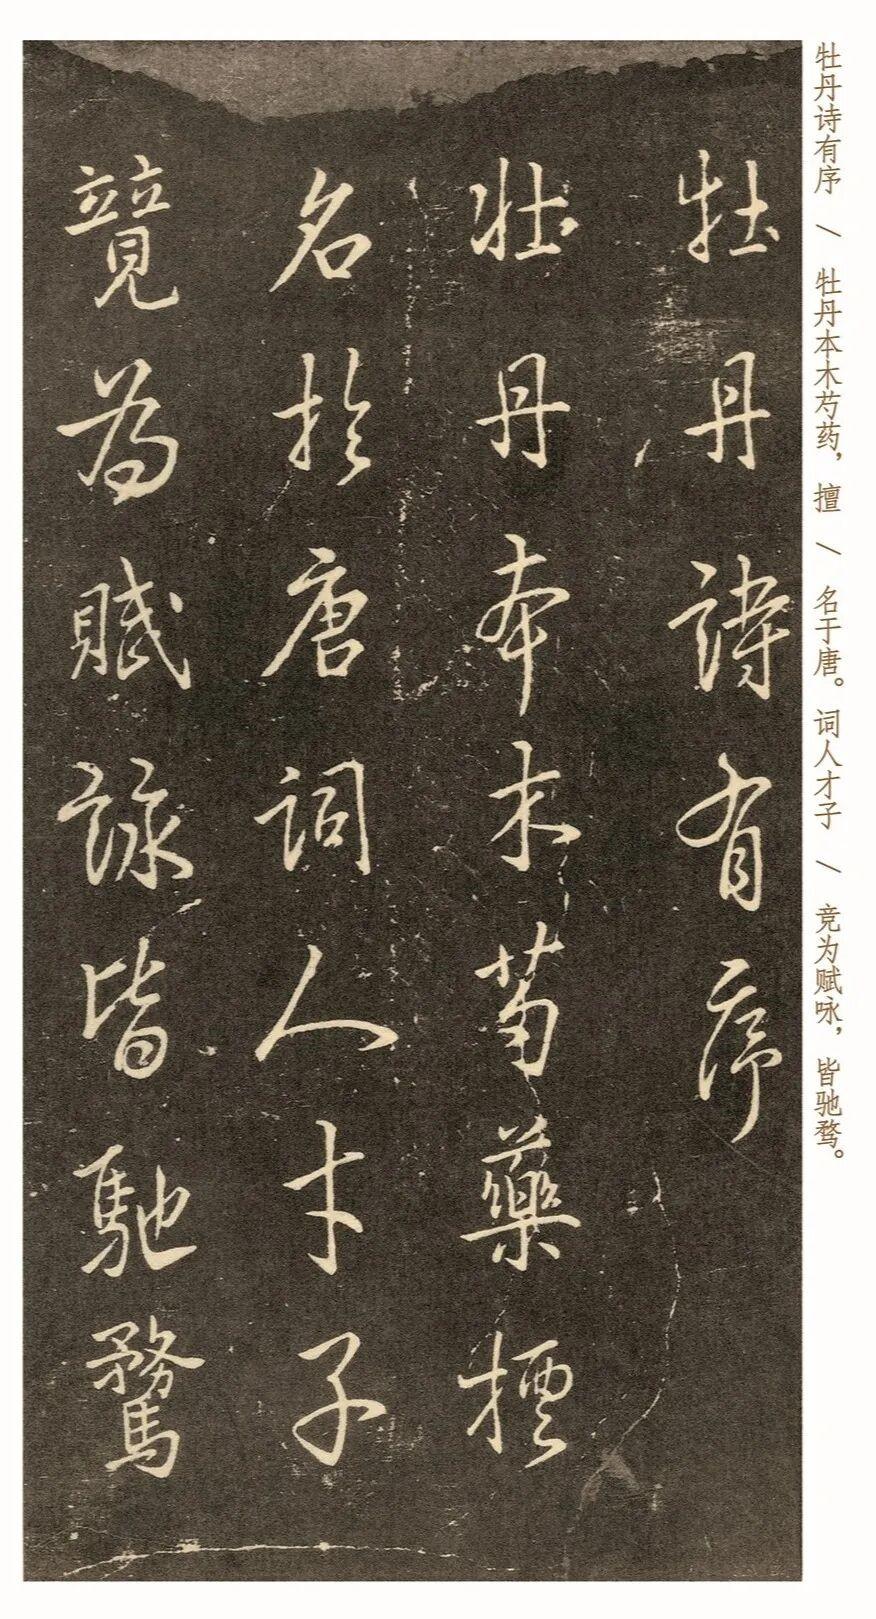 牡丹诗有序 / 牡丹本木芍药，擅 / 名于唐。词人才子 / 竞为赋咏，皆驰骛。
牡丹詩有序
牡丹本木芍藥擅
名於唐詞人才子
競為賦詠皆馳騖